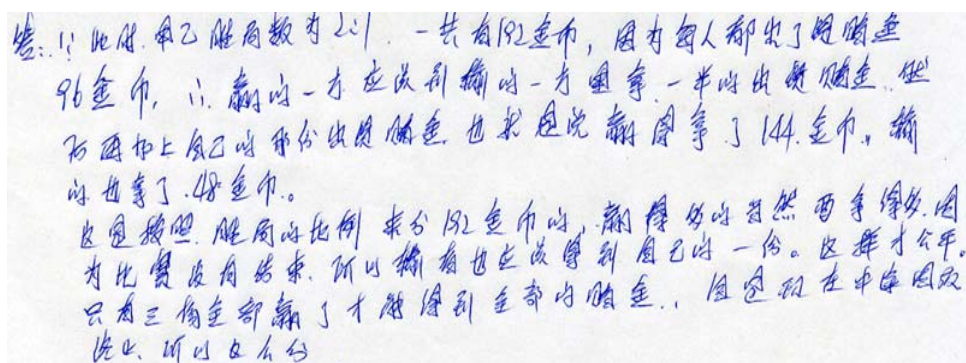 答：∵ 此时甲乙胜局数为2:1，一共有192金币，因为每人都出了赌金
96金币，∴ 赢的一方应该到输的一方里拿一半的出赌金，然
后再加上自己的那份出赌金，也就是说赢得拿了144金币。输
的也拿了48金币。
这是按照胜局的比例来分192金币的，赢得多的当然要拿得多，因
为比赛没有结束，所以输者也应该拿到自己的一份。这样才公平。
只有三场全部赢了才能得到全部的赌金，但是现在中
所以这么分